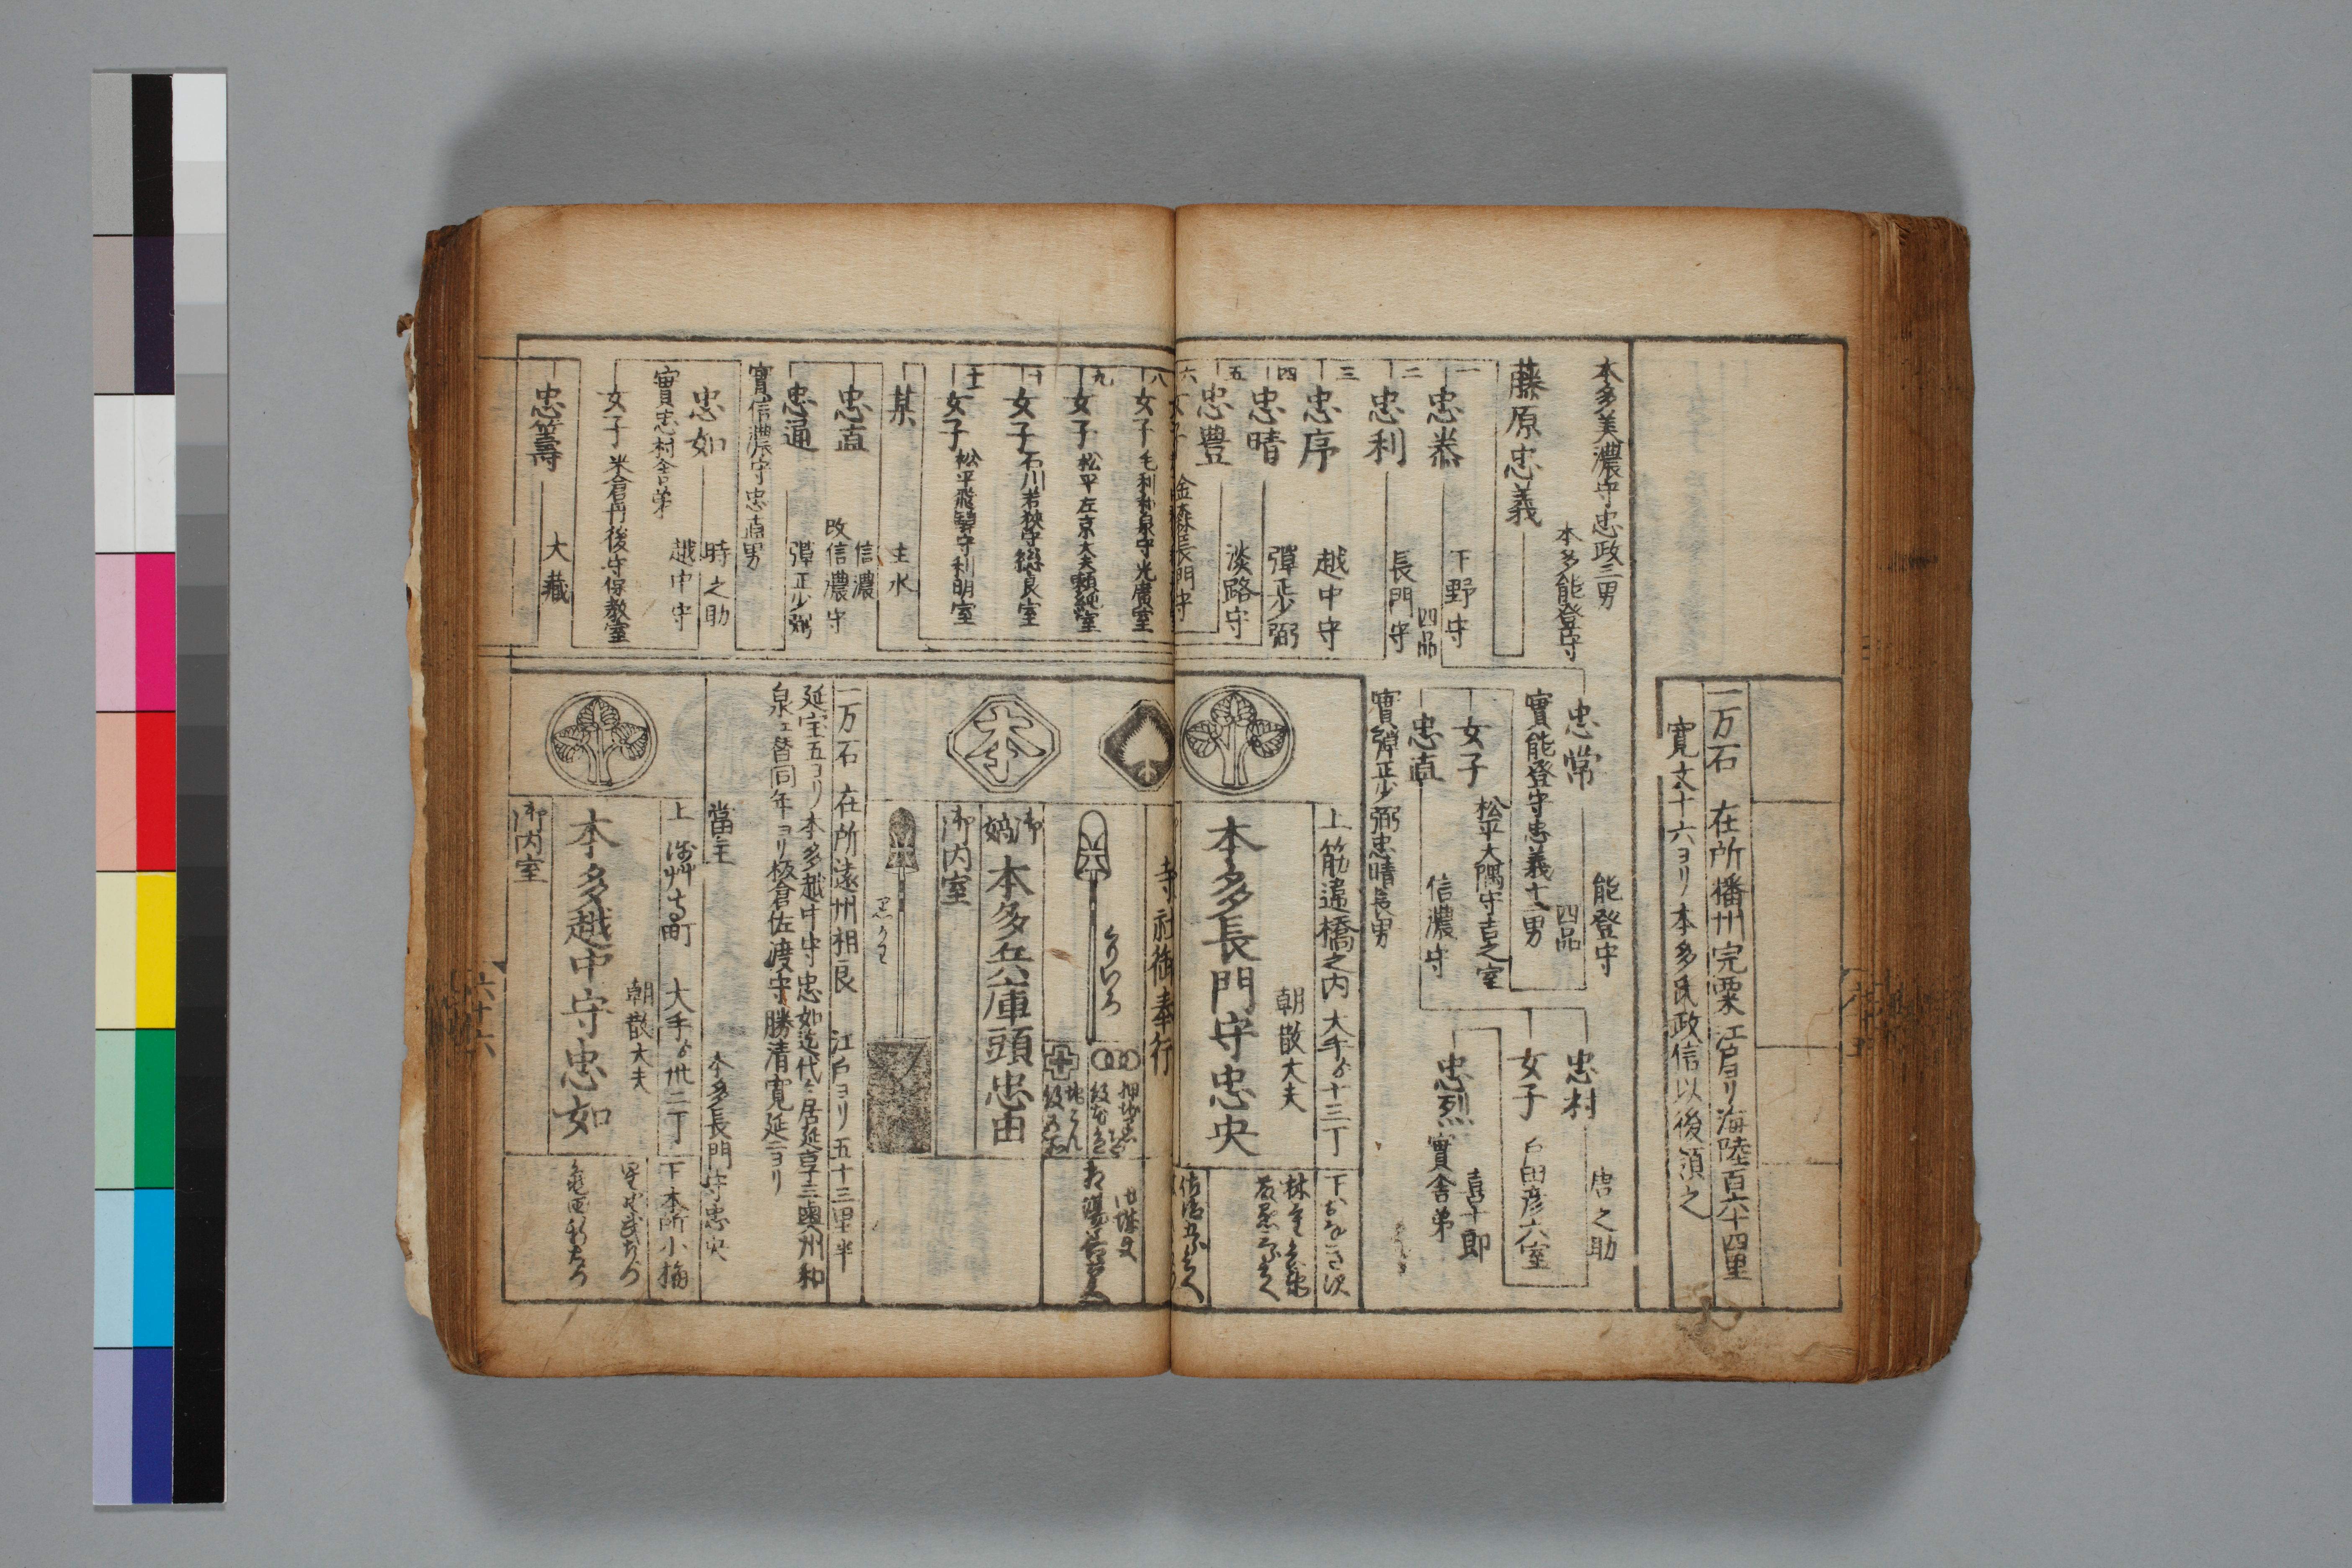 一万石　在所播州完粟　江戸ヨリ海陸百六十四里
寛文十六ヨリ本多氏政信以後領之
本多美濃守忠政三男
藤原忠義
本多能登守
一
忠恭
下野守
四品
二
忠利
長門守
三
忠序
越中守
四
忠晴
彈正少弼
五
忠豊
淡路守
六
女子
金森長門守
八
女子
毛利和泉守光廣室
九
女子
松平左京大夫頼純室
十
女子
石川若狭守總良室
十一
女子
松平飛騨守利明室
某
主水
忠直
信濃
改信濃守
忠通
彈正少弼
實信濃守忠直男
忠如
時之助
越中守
實忠村舎弟
女子　米倉丹後守保教室
忠籌
大藏
忠常
能登守
四品
實能登守忠義十二男
女子
松平大隅守吉之室
忠直
信濃守
實彈正少弼忠晴長男
忠村
唐之助
女子
戸田彦六室
忠烈
喜十郎
實舎弟
上筋違橋之内　大手ゟ十三丁
朝散大夫
本多長門守忠央
寺社御奉行
御嫡
本多兵庫頭忠由
御内室
一万石　在所遠州相良　江戸ヨリ五十三里半
延宝五ヨリ本多越中守忠如迄代々居延享三奥州和
泉ェ替同年ヨリ板倉佐渡守勝清寛延二ヨリ
當主
本多長門守忠央
上　浅艸寺町　大手ゟ卅二丁
下本所小梅
朝散大夫
本多越中守忠如
御内室
六十六